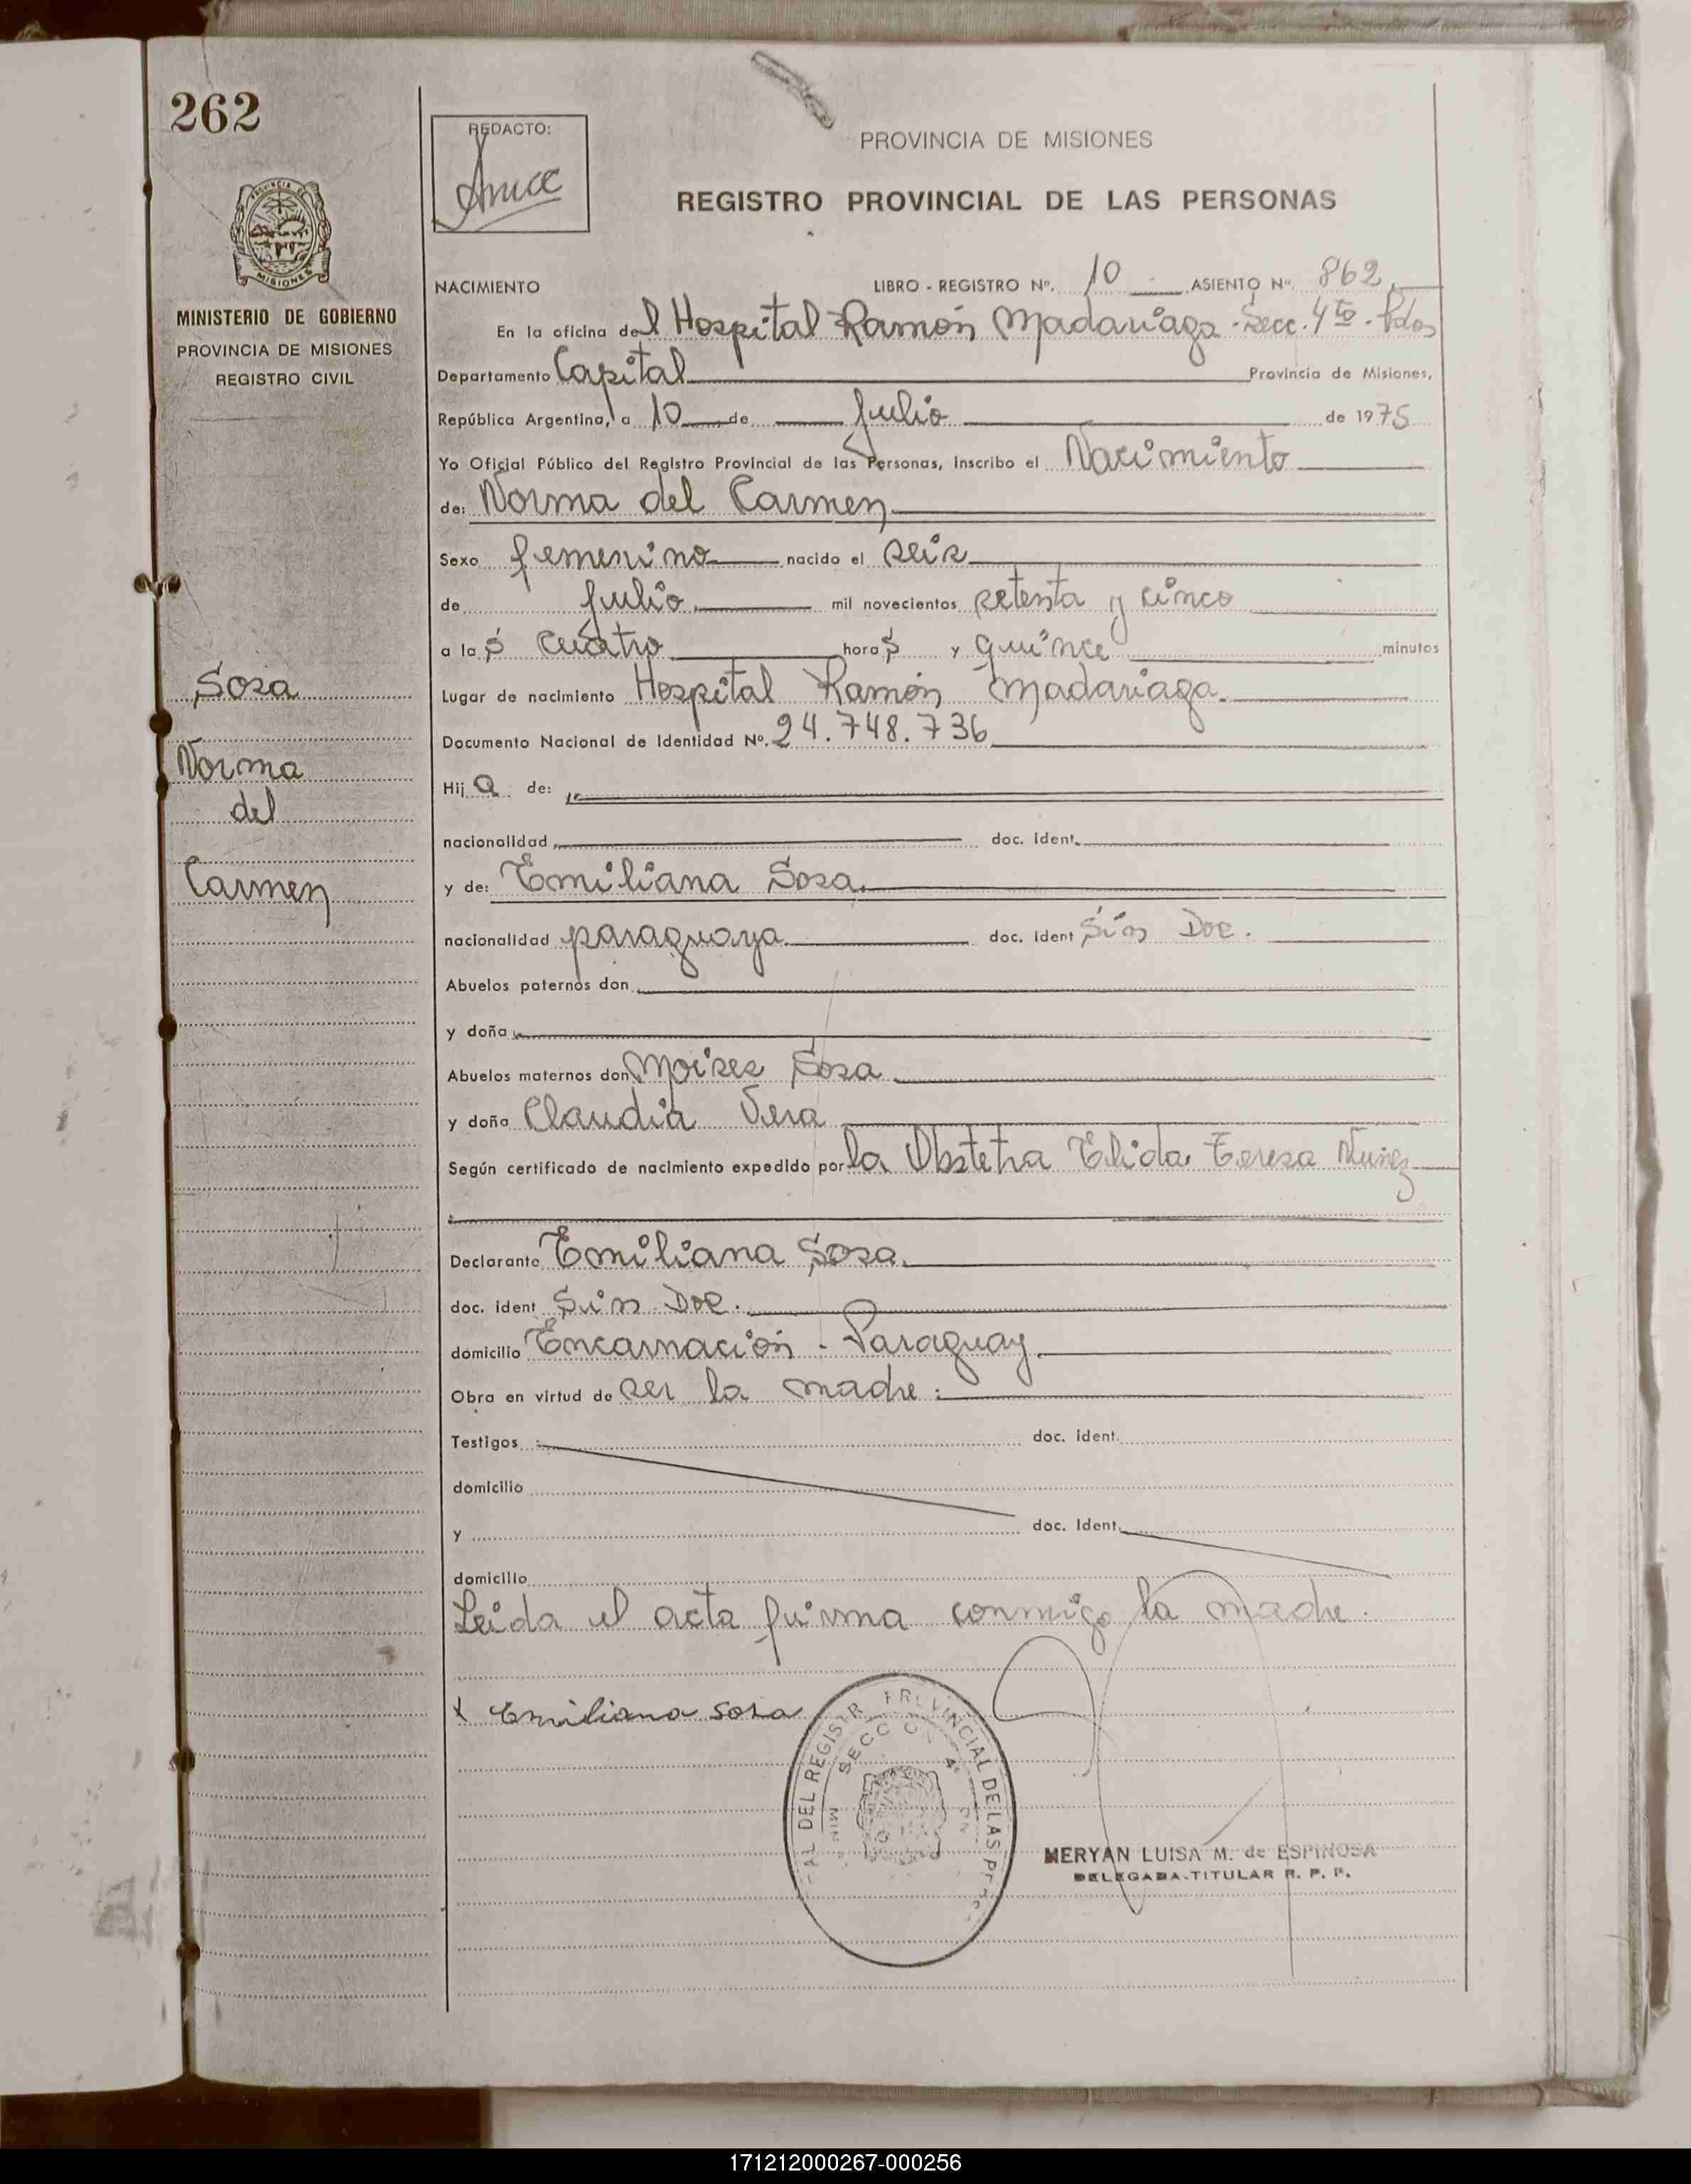 262
REDACTO:
PROVINCIA DE MISIONES
REGISTRO PROVINCIAL DE LAS PERSONAS
PROVINCIA DE
MISIONES
MINISTERIO DE GOBIERNO
PROVINCIA DE MISIONES
REGISTRO CIVIL
Sosa
Norma
del
Carmen
NACIMIENTO LIBRO - REGISTRO Nº. 10 ASIENTO Nº. 862
En la oficina del Hospital Ramón Madariaga - Secc. 4ta - Pdas
Departamento Capital Provincia de Misiones,
República Argentina, a 10 de Julio de 1975
Yo Oficial Público del Registro Provincial de las Personas, Inscribo el Nacimiento
de: Norma del Carmen
Sexo femenino nacido el seis
de Julio mil novecientos setenta y cinco
a las cuatro horas y quince minutos
Lugar de nacimiento Hospital Ramón Madariaga.
Documento Nacional de Identidad Nº. 24.748.736
Hija de:
nacionalidad doc. Ident.
y de: Emiliana Sosa.
nacionalidad paraguaya doc. Ident Sin Doc.
Abuelos paternos don
y doña
Abuelos maternos don Moises Sosa
y doña Claudia Vera
Según certificado de nacimiento expedido por la Obstetra Elida Teresa Nuñez
Declarante Emiliana Sosa.
doc. ident Sin Doc.
domicilio Encarnación - Paraguay.
Obra en virtud de ser la madre:
Testigos doc. ident.
domicilio
y doc. Ident.
domicilio
Leida el acta firma conmigo la madre.
x Emiliana Sosa
DEL REGISTR PROVINCIAL DE LAS
SECCION 4ª
MERYAN LUISA M. de ESPINOSA
DELEGADA TITULAR R. P. P.
171212000267-000256